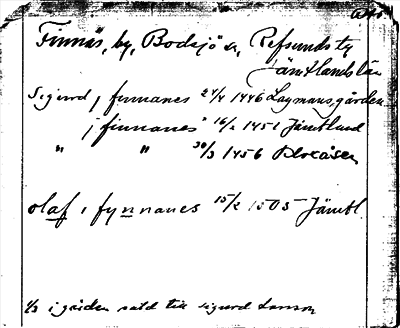 Finnäs, by, Bodsjö sn, Refsunds tg
Jämtlands län
Sigurd j finnanes 24/4 1446 Lagmansgården
j finnanes 16/2 1451 Jämtlund
" " 30/3 1456 Klockåsen
olaf i fynnanes 15/2 1505 Jämtl
1/2 i gården såld till sigurd Larsson